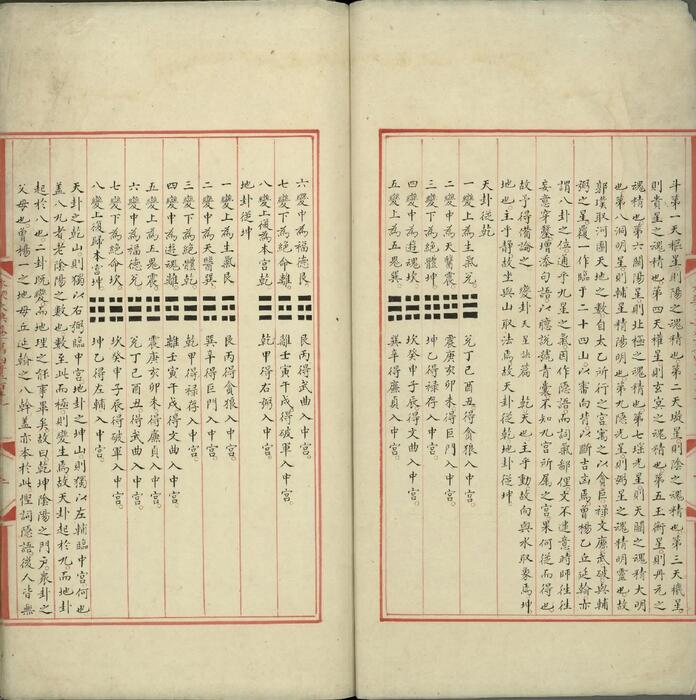 斗第一天樞星則陽星之魂精也第二天璇星則陰星之魂精也第三天璣星
則真星之魂精也第四天權星則玄冥之魂精也第五玉衡星則丹元之
魂精也第六闓陽星則北極之魂精也第七瑤光星則天關之魂精大明
也第八洞明星則輔星精陽明也第九隱光星則弼星之魂精明靈也故
郭璞取河圖天地之數自太乙所行之宮寓之以貪巨祿文廉武破與輔
弼之星履一作臨于二十四山以番向背以斷吉凶焉曾楊乙丘延翰亦
謂八卦之係通于九星之氣因作隱語而詞氣鄙俚文不達意時師往往
妄意穿鑿增添句語以臆說號青囊不知九宮所屬之宮果何從而得也
故予得備論之 變卦天星訣篇 乾天也主乎動故向與水取象焉坤
地也主乎靜故坐與山取法焉故天卦從乾地卦從坤
天卦從乾
一變上為生氣兌 兌丁巳酉丑得貪狼入中宮。
二變中為天醫震 震庚亥卯未得巨門入中宮。
三變下為絕體坤 坤乙得祿存入中宮。
四變中為遊魂坎 坎癸申子辰得文曲入中宮
五變上為五鬼巽 巽辛得廉貞入中宮。
六變中為福德艮 艮丙得武曲入中宮。
七變下為絕命離 離壬寅午戌得破軍入中宮。
八變上後為本宮乾 乾甲得右弼入中宮。
地卦從坤
一變上為生氣艮 艮丙得貪狼入中宮。
二變中為天醫巽 巽辛得巨門入中宮。
三變下為絕體乾 乾甲得祿存入中宮。
四變中為遊魂離 離壬寅午戌得文曲入中宮
五變上為五鬼震 震庚亥卯未得廉貞入中宮。
六變中為福德兌 兌丁巳酉丑得武曲入中宮。
七變下為絕命坎 坎癸申子辰得破軍入中宮。
八變上後歸本宮坤 坤乙得左輔入中宮。
天卦之乾山則獨以右弼臨中宮地卦之坤山則獨以左輔臨中宮何也
蓋八九者老陰陽之數也數至此而極則變生焉故天卦起於九而地卦
起於八也。二卦既變而地理之能事畢矣故曰乾坤陰陽之門戶眾卦之
父母也曾楊一之地母丘延翰之八幹蓋亦本於此俚詞隱語後人皆無